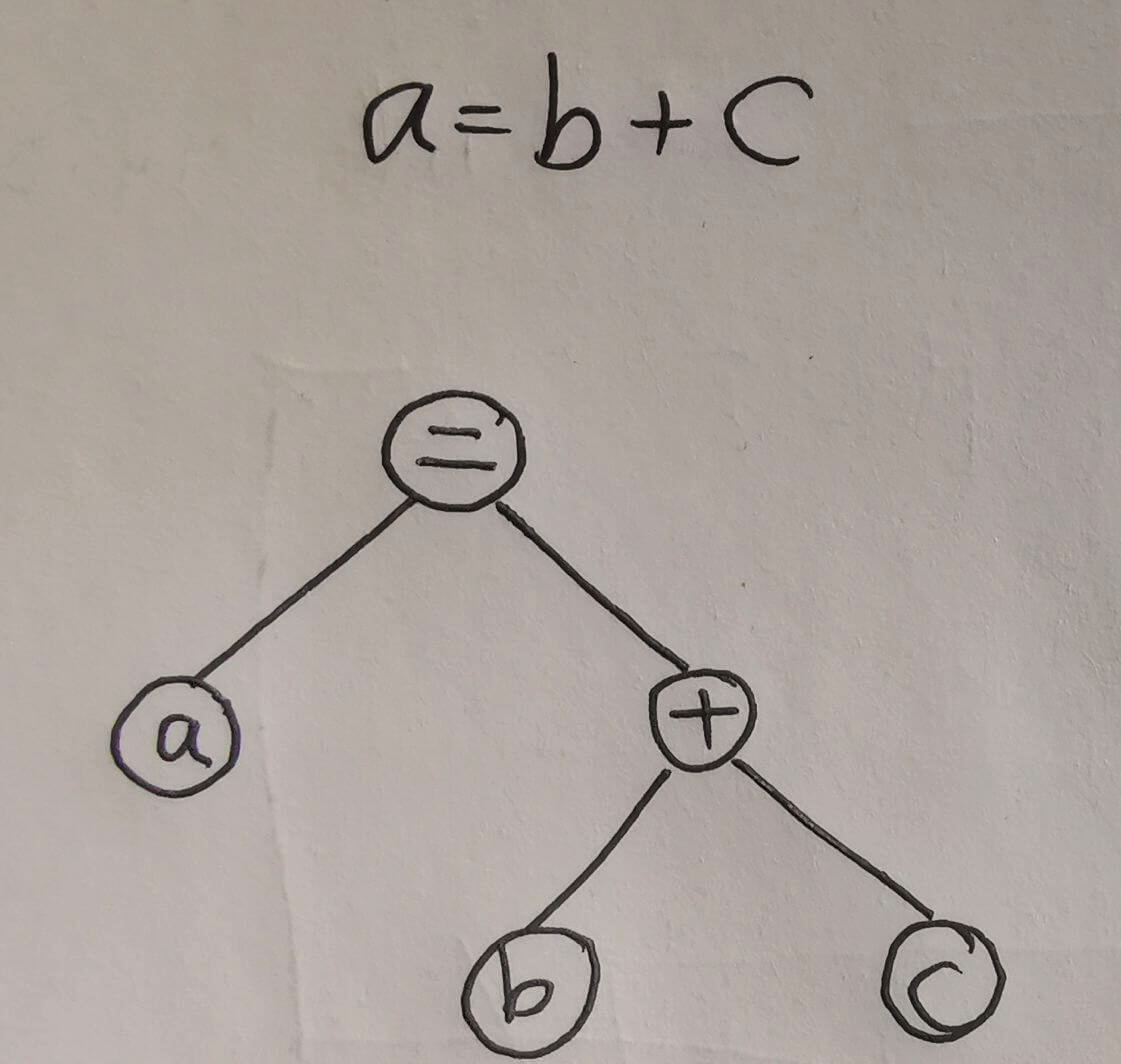 a = b + c
=
a
+
b
c